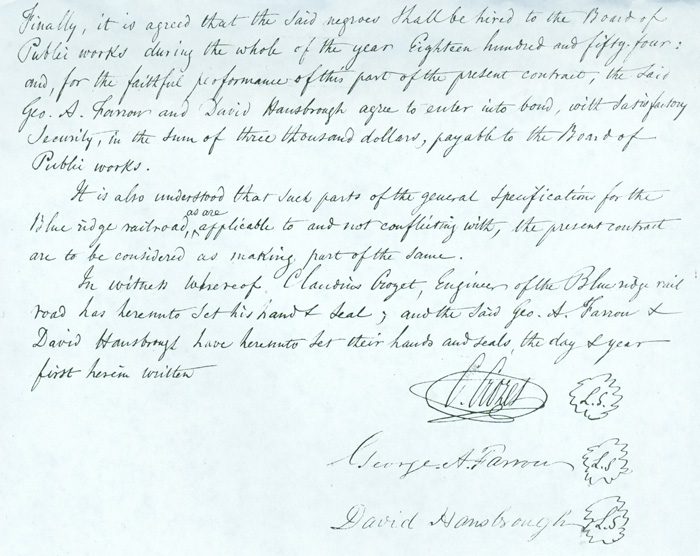 Finally, it is agreed that the said negroes shall be hired to the Board of
Public works during the whole of the year Eighteen hundred and fifty-four:
and, for the faithful performance of this part of the present contract, the said
Geo. A. Farrow and David Hansbrough agree to enter into bond, with satisfactory
Security, in the sum of three thousand dollars, payable to the Board of
Public works.
It is also understood that such parts of the general specifications for the
Blue ridge railroad, as are applicable to and not conflicting with, the present contract
are to be considered as making part of the same.
In witness whereof, Claudius Crozet, Engineer of the Blue ridge rail
road has hereunto set his hand & seal; and the said Geo. A. Farrow &
David Hansbrough have hereunto set their hands and seals, the day & year
first herein written
C. Crozet L.S.
George A. Farrow L.S
David Hansbrough L.S.